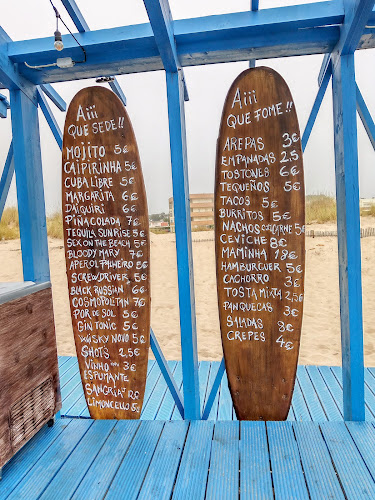 Aiii
QUE SEDE!!
MOJITO 5€
CAIPIRINHA 5€
CUBA LIBRE 5€
MARGARITA 6€
DAIQUIRI 6€
PIÑA COLADA 7€
TEQUILA SUNRISE 5€
SEX ON THE BEACH 5€
BLOODY MARY 7€
APEROL PALHEIRO 5€
SCREWDRIVER 5€
BLACK RUSSIAN 6€
COSMOPOLITAN 7€
POR DE SOL 5€
GIN TONIC 5€
WISKY NOVO 5€
SHOTS 2.5€
VINHO 3€
ESPUMANTE
SANGRIA
LIMONCELLO 5€
Aiii
QUE FOME!!
AREPAS 3€
EMPANADAS 2.5
TOSTONES 6€
TEQUEÑOS 5€
TACOS 5€
BURRITOS 5€
NACHOS C/CARNE 5€
CEVICHE 8€
MAMINHA 18€
HAMBURGUER 5€
CACHORRO 3€
TOSTA MIXTA 2.5
PANQUECAS 3€
SALADAS 3€
CREPES 4€